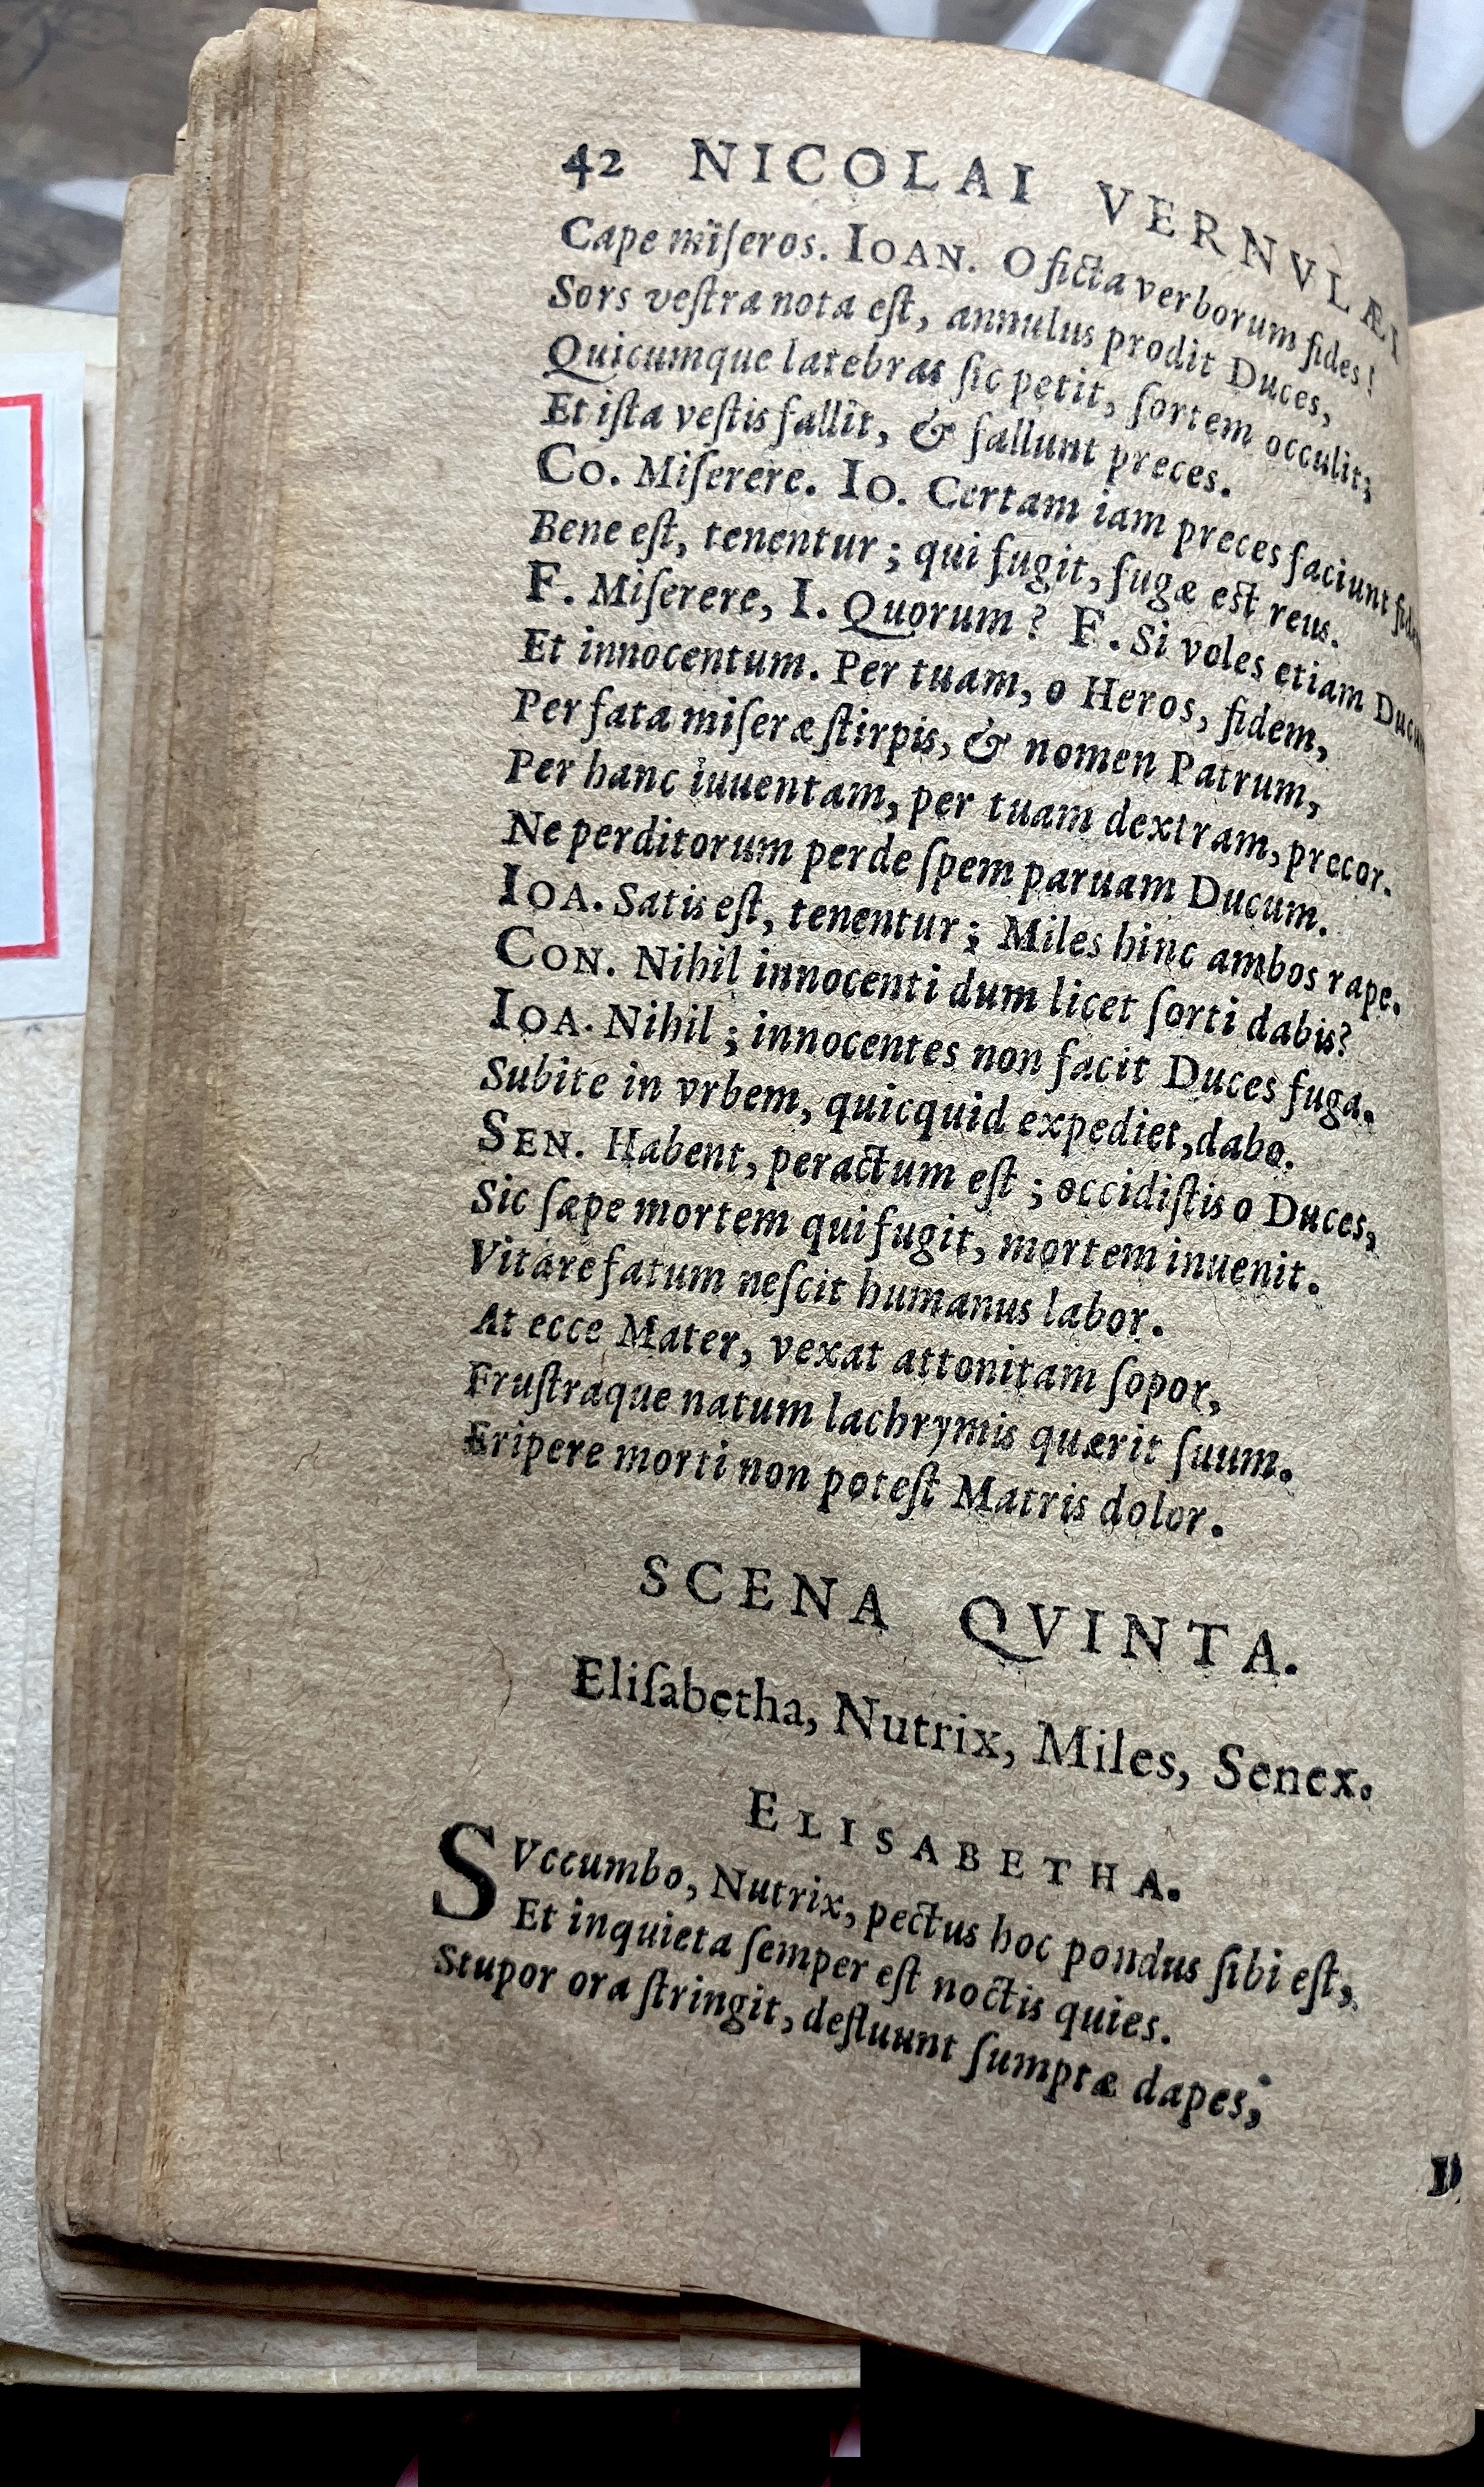 42 NICOLAI VERNVLÆI
Cape miſeros. IOAN. O ficta verborum fides!
Sors veſtra nota eſt, annulus prodit Duces,
Quicumque latebras ſic petit, ſortem occulit;
Et iſta veſtis fallit, & fallunt preces.
CO. Miſerere. IO. Certam iam preces faciunt
Bene eſt, tenentur; qui fugit, fugæ eſt reus.
F. Miſerere, I. Quorum? F. Si voles etiam
Et innocentum. Per tuam, o Heros, fidem,
Per fata miſeræ ſtirpis, & nomen Patrum,
Per hanc iuuentam, per tuam dextram, precor.
Ne perditorum perde ſpem paruam Ducum.
IOA. Satis eſt, tenentur; Miles hinc ambos rape.
CON. Nihil innocenti dum licet ſorti dabis?
IOA. Nihil; innocentes non facit Duces fuga.
Subite in vrbem, quicquid expediet, dabo.
SEN. Habent, peractum eſt; occidiſtis o Duces,
Sic ſæpe mortem qui fugit, mortem inuenit.
Vitare fatum neſcit humanus labor.
At ecce Mater, vexat attonitam ſopor,
Fruſtraque natum lachrymis quærit ſuum.
Eripere morti non poteſt Matris dolor.
SCENA QVINTA.
Eliſabetha, Nutrix, Miles, Senex.
ELISABETHA.
SVccumbo, Nutrix, pectus hoc pondus ſibi eſt,
Et inquieta ſemper eſt noctis quies.
Stupor ora ſtringit, defluunt ſumptæ dapes,